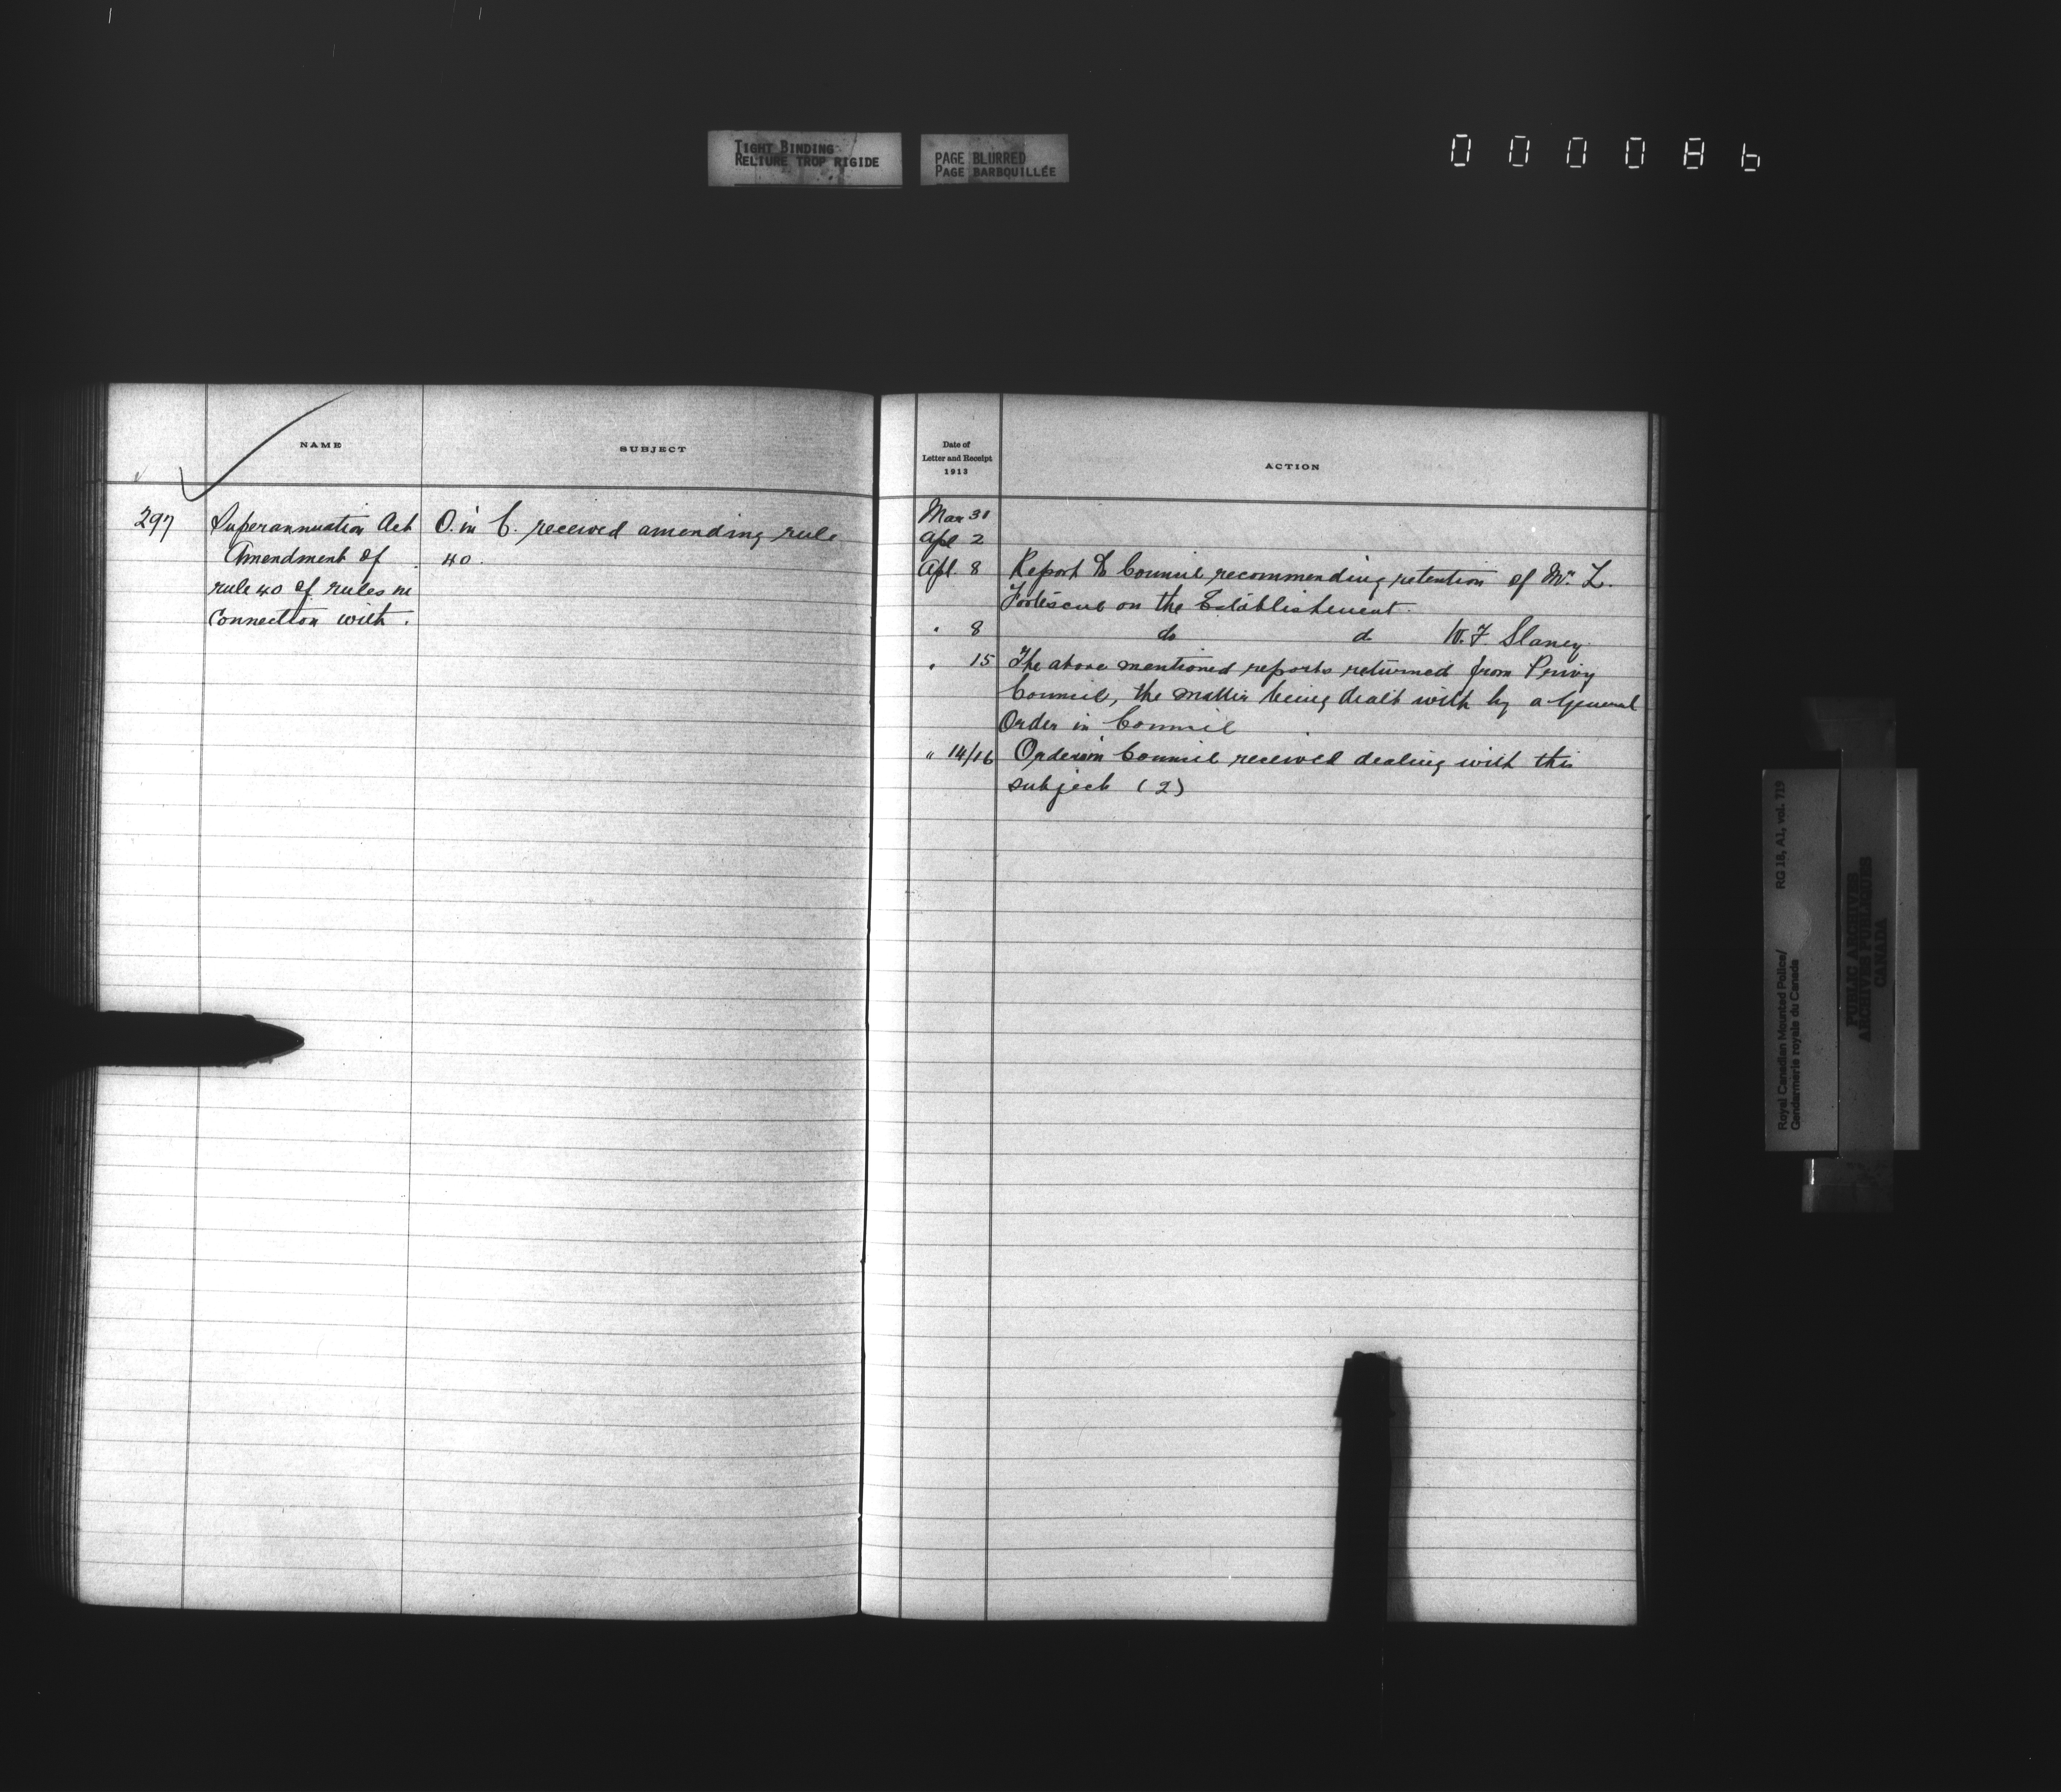 TIGHT BINDING
RELIURE TROP RIGIDE
PAGE BLURRED
PAGE BARBOUILLÉE
0 0 0 0 8 6
NAME
SUBJECT
297
Superannuation Act
Amendment of
rule 40 of rules in
connection with.
O. in C. received amending rule
40.
Date of
Letter and Receipt
1913
ACTION
Mar 31
Apl 2
Apl. 8 Report to Council recommending retention of Mr. L.
Fortescue on the Establishment.
" 8 do do W. F Slaney
" 15 The above mentioned reports returned from Privy
Council, the matter being dealt with by a General
Order in Council
" 14/16 Order in Council received dealing with this
subject (2)
Royal Canadian Mounted Police/ RG 18, A1, vol. 719
Gendarmerie royale du Canada
PUBLIC ARCHIVES
ARCHIVES PUBLIQUES
CANADA